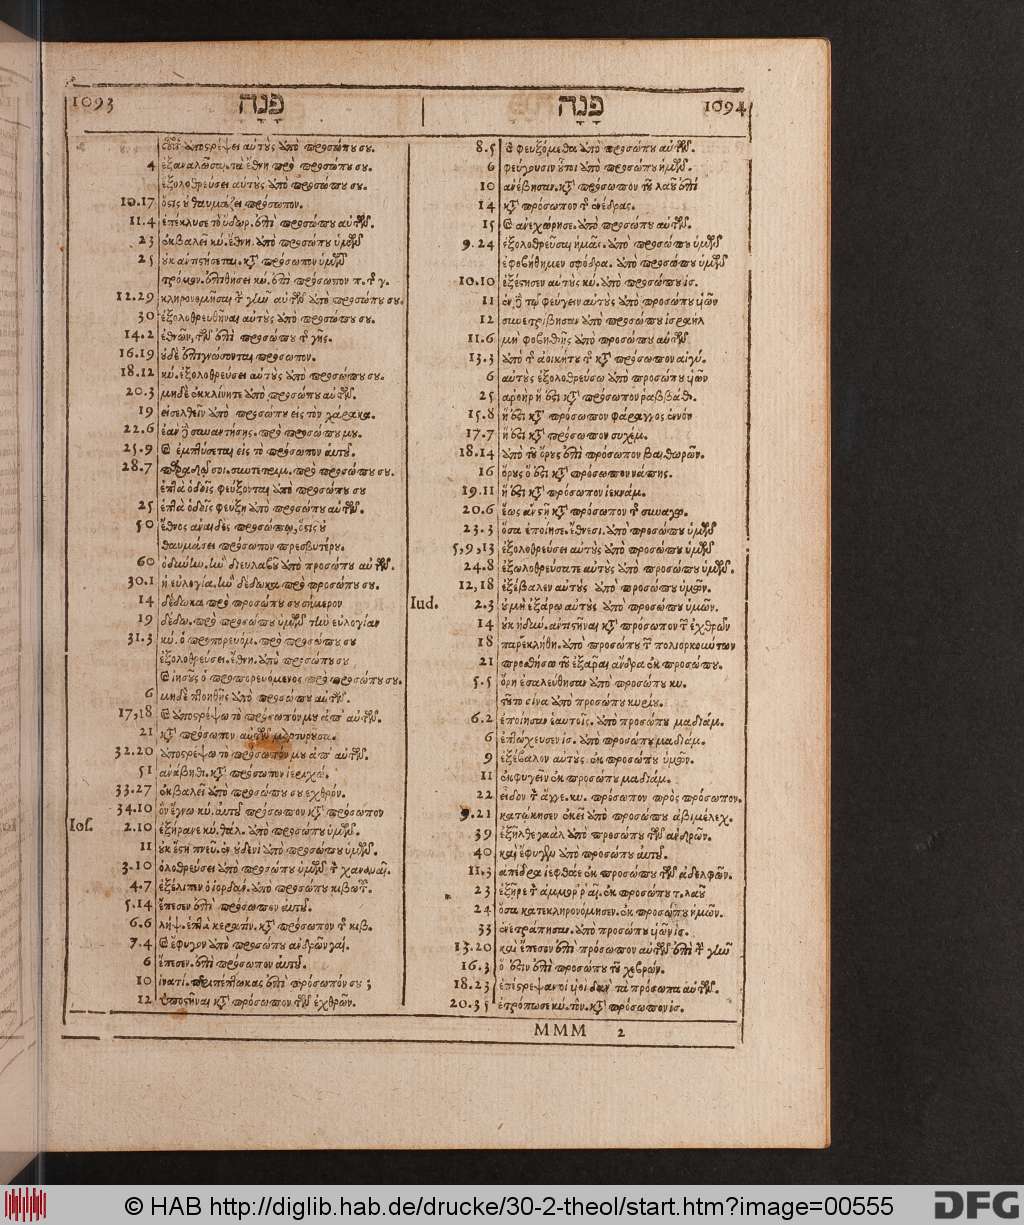 1093 פָּנָה
פָּנָה 1094
ὑποστρέψει αὐτοὺς ὑπὸ προσώπου σου.
4 ἐξαναλώσει τὰ ἔθνη πρὸ προσώπου σου.
ἐξολοθρεύσει αὐτοὺς ὑπὸ προσώπου σου.
10.17 ὅστις οὐ θαυμάζει πρόσωπον.
11.4 ἐπέκλυσε τὸ ὕδωρ. ἐπὶ προσώπου αὐτῶν.
23 ἐκβαλεῖ κύ. ἔθνη. ὑπὸ προσώπου ὑμῶν
25 οὐκ ἀντιστήσεται. κτ πρόσωπον ὑμῶν
τρόμον. ἐπιθήσει κύ. ἐπὶ πρόσωπον π. τ γ.
12.29 κληρονομῆσαι τ γῆν αὐτῶν ὑπὸ προσώπου σου.
30 ἐξολοθρευθῆναι αὐτοὺς ὑπὸ προσώπου σου.
14.2 ἐθνῶν, τῶν ἐπὶ προσώπου τ γῆς.
16.19 οὐδὲ ἐπιγνώσονται πρόσωπον.
18.12 κύ. ἐξολοθρεύσει αὐτοὺς ὑπὸ προσώπου σου.
20.3 μηδὲ ἐκκλίνητε ὑπὸ προσώπου αὐτῶν.
19 εἰσελθεῖν ὑπὸ προσώπου εἰς τὸν χάρακα.
22.6 ἐὰν συναντήσῃς. πρὸ προσώπου μου.
25.9 καὶ ἐμπτύσεται εἰς τὸ πρόσωπον αὐτοῦ.
28.7 σοι. συντετριμμ. πρὸ προσώπου σου.
ἑπτὰ ὁδοῖς φεύξονται ὑπὸ προσώπου σου
25 ἑπτὰ ὁδοῖς φεύξῃ ὑπὸ προσώπου αὐτῶν.
50 ἔθνος ἀναιδὲς προσώπῳ, ὅστις οὐ
θαυμάσει πρόσωπον πρεσβυτέρου.
60 ὀδύνην. ἣν διευλαβοῦ ὑπὸ προσώπου αὐτῶν.
30.1 ἡ εὐλογία. ἣν δέδωκα πρὸ προσώπου σου.
14 δέδωκα πρὸ προσώπου σου σήμερον
19 δέδω. πρὸ προσώπου ὑμῶν τὴν εὐλογίαν
31.3 κύ. ὁ προπορευόμ. πρὸ προσώπου σου
ἐξολοθρεύσει. ἔθνη. ὑπὸ προσώπου σου
καὶ ἰησοῦς ὁ προπορευόμενος πρὸ προσώπου σου.
6 μηδὲ πτοηθῇς ὑπὸ προσώπου αὐτῶν.
17,18 καὶ ὑποστρέψω τὸ πρόσωπόν μου ἀπ' αὐτῶν.
21 κτ πρόσωπον αὐτῶν μαρτυροῦσα.
32.20 ὑποστρέψω τὸ πρόσωπόν μου ἀπ' αὐτῶν.
51 ἀνάβηθι. κτ πρόσωπον ἱεριχώ.
33.27 ἐκβαλεῖ ὑπὸ προσώπου σου ἐχθρόν.
34.10 ὃν ἔγνω κύ. αὐτὸν πρόσωπον κτ πρόσωπον
Ios. 2.10 ἐξήρανε κύ. θάλ. ὑπὸ προσώπου ὑμῶν.
11 οὐκ ἔστη πνεῦ. ἐν οὐδενὶ ὑπὸ προσώπου ὑμῶν.
3.10 ὀλοθρεύσει ὑπὸ προσώπου ὑμῶν τ χαναναῖ.
4.7 ἐξέλιπεν ὁ ἰορδάν. ὑπὸ προσώπου κιβωτ.
5.14 ἔπεσεν ἐπὶ πρόσωπον αὐτοῦ.
6.6 λήψ. ἑπτὰ κερατίν. κτ πρόσωπον τ κιβ.
7.4 καὶ ἔφυγον ὑπὸ προσώπου ἀνδρῶν γαί.
6 ἔπεσεν. ἐπὶ πρόσωπον αὐτοῦ.
10 ἱνατί. πέπτωκας ἐπὶ πρόσωπόν σου;
12 ὑποστῆναι κτ πρόσωπον τῶν ἐχθρῶν.
8.5 καὶ φευξόμεθα ὑπὸ προσώπου αὐτῶν.
6 φεύγουσιν οὗτοι ὑπὸ προσώπου ἡμῶν.
10 ἀνέβησαν. κτ πρόσωπον τοῦ λαοῦ ἐπὶ
14 κτ πρόσωπον τ ἐνέδρας.
15 καὶ ἀνεχώρησε. ὑπὸ προσώπου αὐτῶν.
9.24 ἐξολοθρεῦσαι ἡμᾶς. ὑπὸ προσώπου ὑμῶν
ἐφοβήθημεν σφόδρα. ὑπὸ προσώπου ὑμῶν
10.10 ἐξέστησεν αὐτοὺς κύ. ὑπὸ προσώπου ἰσ.
11 ἐν τῷ φεύγειν αὐτοὺς ὑπὸ προσώπου υἱῶν
12 συνετρίβησαν ὑπὸ προσώπου ἰσραήλ
11.6 μὴ φοβηθῇς ὑπὸ προσώπου αὐτῶν.
13.3 ὑπὸ τ ἀοικήτου τ κτ πρόσωπον αἰγύ.
6 αὐτοὺς ἐξολοθρεύσω ὑπὸ προσώπου υἱῶν
25 ἀροὴρ ἥ ἐστι κτ πρόσωπον ῥαββάθ.
15.8 ἥ ἐστι κτ πρόσωπον φάραγγος ἐννόν
17.7 ἥ ἐστι κτ πρόσωπον συχέμ.
18.14 ὑπὸ τοῦ ὄρους ἐπὶ πρόσωπον βαιθωρῶν.
16 ὄρους ὅ ἐστι κτ πρόσωπον νάπης.
19.11 ἥ ἐστι κτ πρόσωπον ἰεκνάμ.
20.6 ἕως ἂν στῇ κτ πρόσωπον τ συναγω.
23.3 ὅσα ἐποίησε. ἔθνεσι. ὑπὸ προσώπου ὑμῶν
5,9,13 ἐξολοθρεύσει αὐτοὺς ὑπὸ προσώπου ὑμῶν
24.8 ἐξωλοθρεύσατε αὐτοὺς ὑπὸ προσώπου ὑμῶν.
12,18 ἐξέβαλεν αὐτοὺς ὑπὸ προσώπου ὑμῶν.
Iud. 2.3 οὐ μὴ ἐξάρω αὐτοὺς ὑπὸ προσώπου ὑμῶν.
14 οὐκ ἠδύν. ἀντιστῆναι κτ πρόσωπον τ ἐχθρῶν
18 παρεκλήθη. ὑπὸ προσώπου τ πολιορκούντων
21 προσθήσω τοῦ ἐξᾶραι ἄνδρα ἐκ προσώπου.
5.5 ὄρη ἐσαλεύθησαν ὑπὸ προσώπου κυ.
τοῦτο σίνα ὑπὸ προσώπου κυρίου.
6.2 ἐποίησαν ἑαυτοῖς. ὑπὸ προσώπου μαδιάμ.
6 ἐπτώχευσεν ἰσ. ὑπὸ προσώπου μαδιάμ.
9 ἐξέβαλον αὐτοὺς ἐκ προσώπου ὑμῶν.
11 ἐκφυγεῖν ἐκ προσώπου μαδιάμ.
22 εἶδον τ ἄγγε. κυ. πρόσωπον πρὸς πρόσωπον.
9.21 κατῴκησεν ἐκεῖ ὑπὸ προσώπου ἀβιμέλεχ.
39 ἐξῆλθε γαὰλ ὑπὸ προσώπου τῶν ἀνδρῶν.
40 καὶ ἔφυγεν ὑπὸ προσώπου αὐτοῦ.
11.3 ἀπέδρα ἰεφθάε ἐκ προσώπου τῶν ἀδελφῶν.
23 ἐξῇρε τ ἀμμορραῖ. ἐκ προσώπου τ. λαοῦ
24 ὅσα κατεκληρονόμησεν. ἐκ προσώπου ἡμῶν.
33 ἐνετράπησαν. ὑπὸ προσώπου υἱῶν ἰσ.
13.20 καὶ ἔπεσεν ἐπὶ πρόσωπον αὐτῶν ἐπὶ τ γῆν
16.3 ὅ ἐστιν ἐπὶ προσώπου τοῦ χεβρών.
18.23 ἐπέστρεψαν οἱ υἱοὶ δὰν τὰ πρόσωπα αὐτῶν.
20.35 ἐτρόπωσε κύ. τὸν. κτ πρόσωπον ἰσ.
MMM 2
© HAB http://diglib.hab.de/drucke/30-2-theol/start.htm?image=00555
DFG